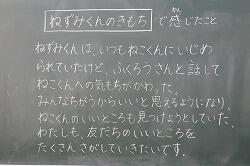 ねずみくんのきもち で感じたこと
ねずみくんは、いつもねこくんにいじめ
られていたけど、ふくろうさんと話して
ねこくんへの気もちがかわった。
みんなちがうからいいと思えるようになり、
ねこくんのいいところも見つけようとしていた。
わたしも、友だちのいいところを
たくさんさがしていきたいです。